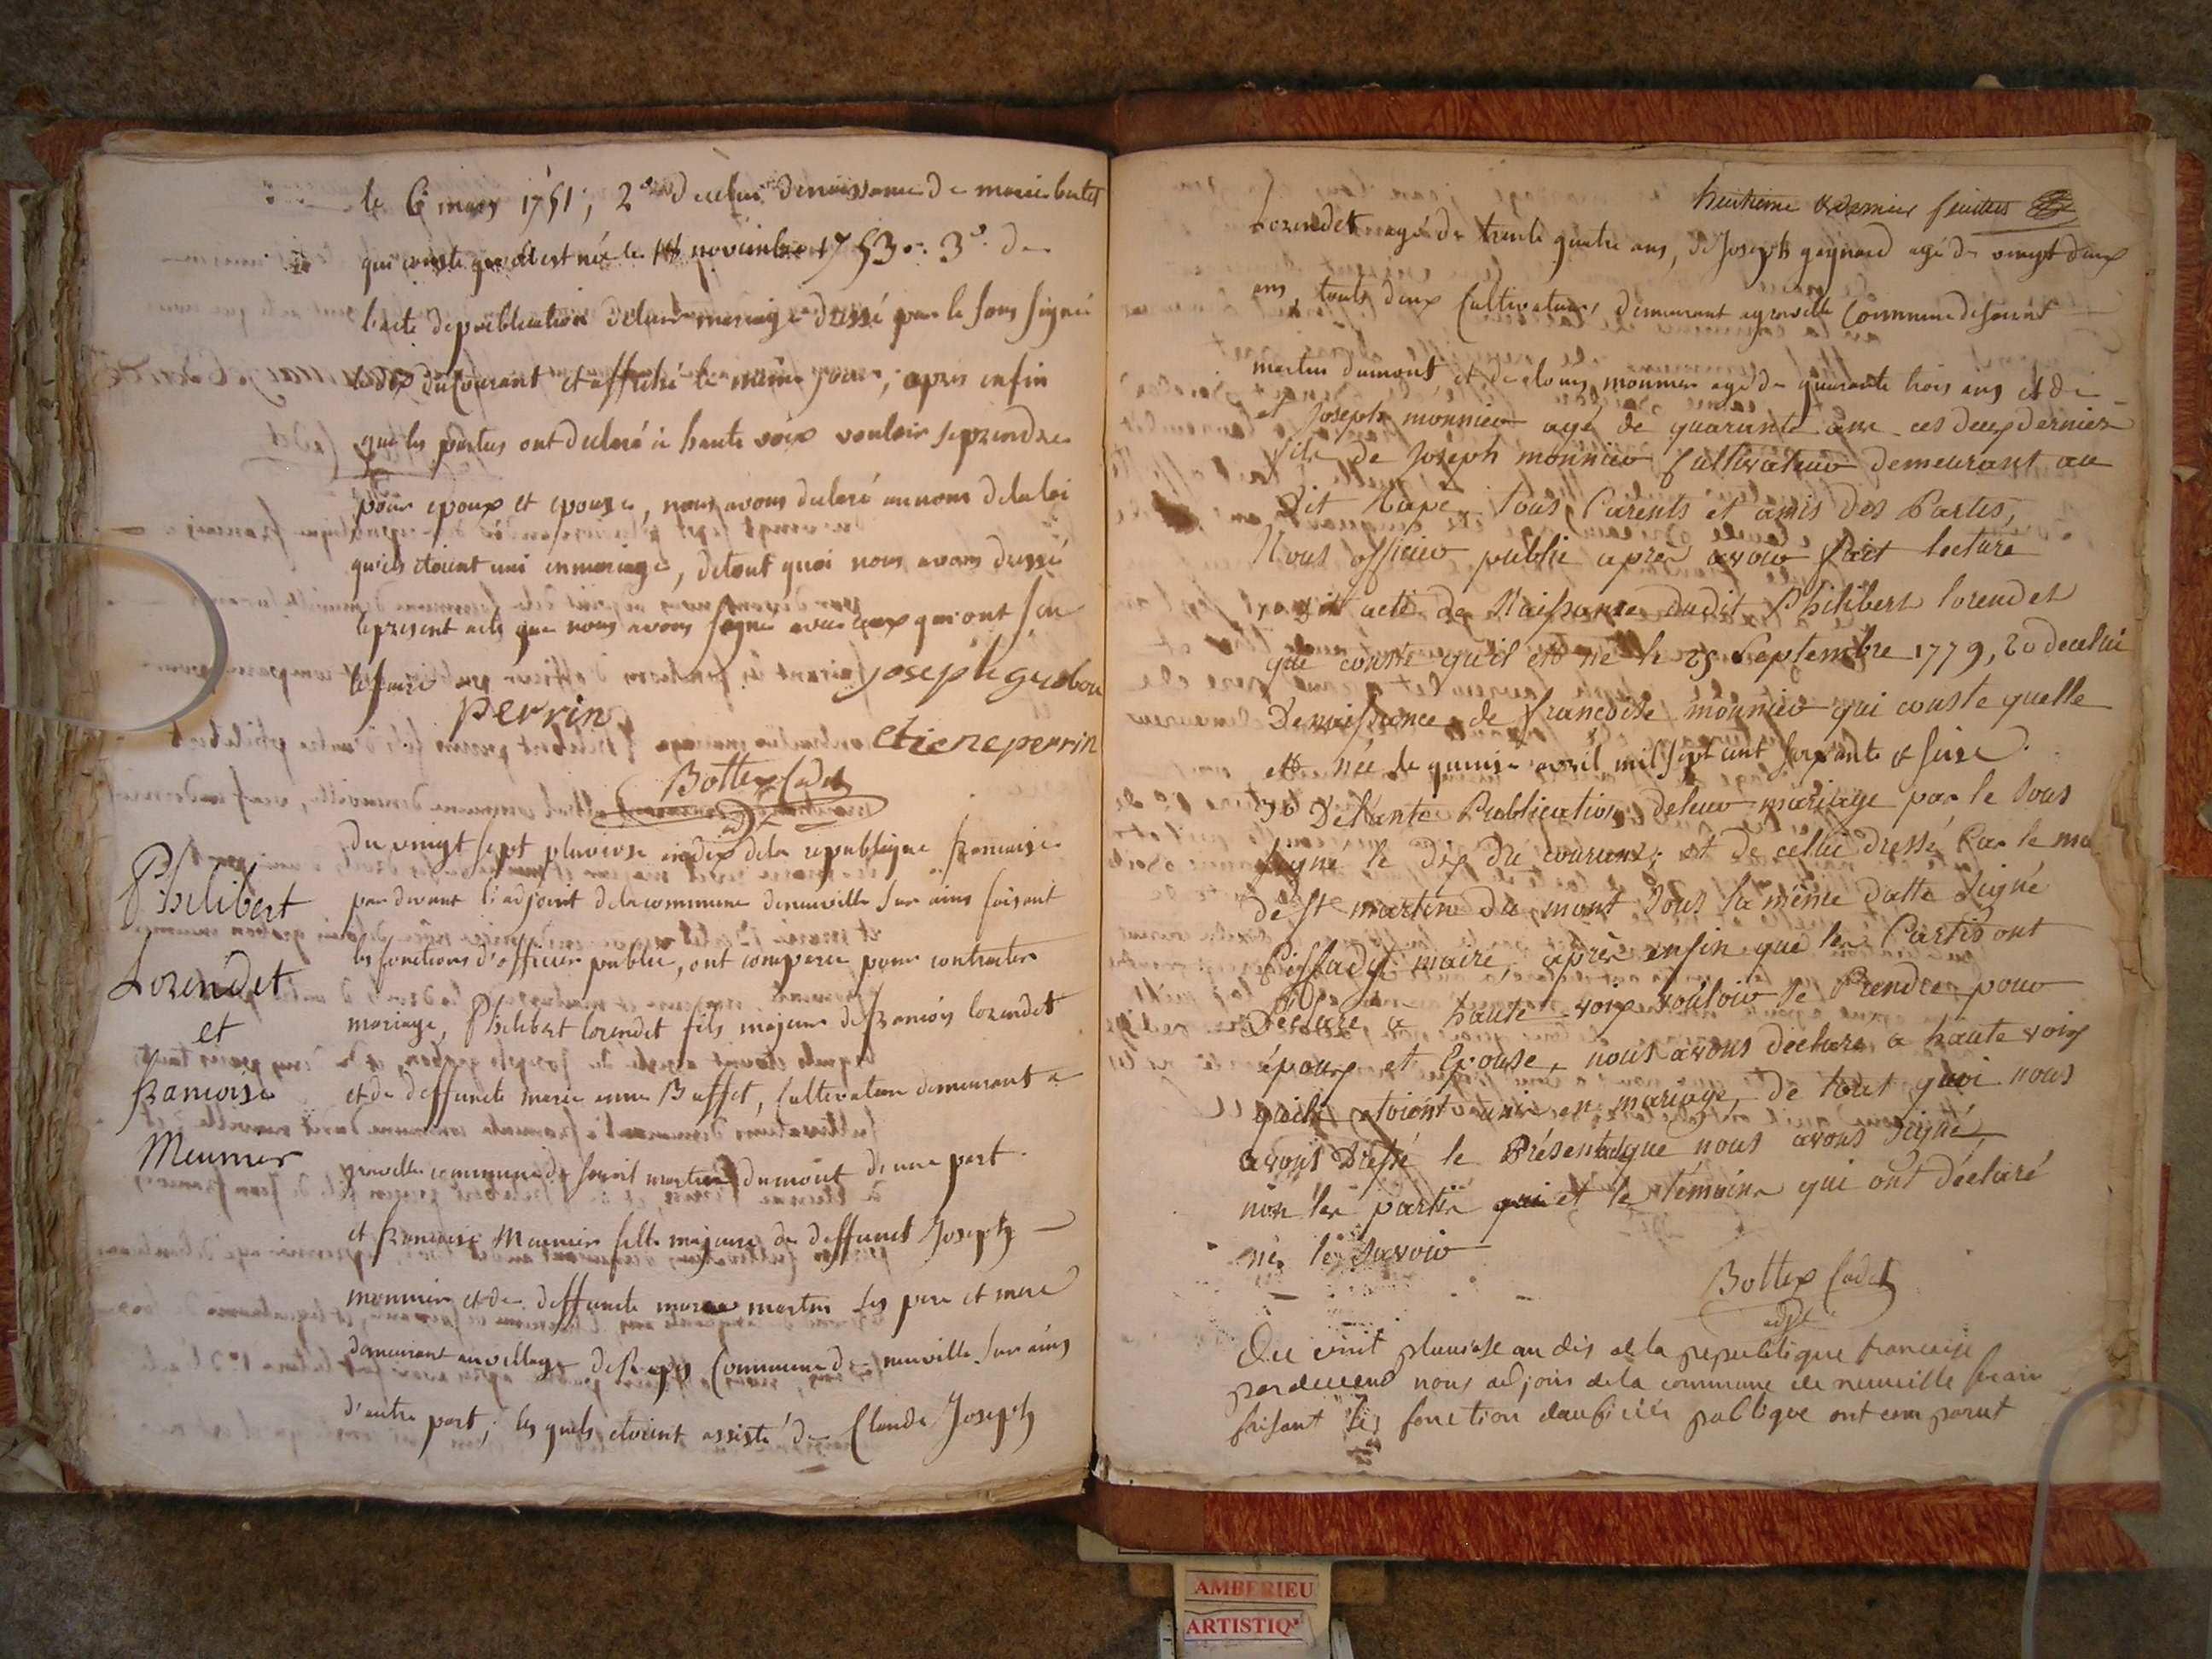 le 6 mars 1751; 2° de celui de naissance de marie
qui conste quelle est née le novembre 1753 3°. de
l'acte de publication de leur mariage dressé par le sous signé
le dix du Courant et affiché le même jour, apres enfin
que les parties ont declaré à haute voix vouloir se prendre
pour epoux et epouse, nous avons declaré au nom de la loi
qu'ils etoient uni en mariage, de tout quoi nous avons dressé
le present acte que nous avons signé avec ceux qui ont sçu
le faire
joseph grobon
perrin
etiene perrin
Bottex Cadet
adjt
Philibert
Lorendet
et
francoise
Meunier
du vingt sept pluviose an dix de la republique francaise
par devant l'adjoint de la commune de neuville sur ains faisant
les fonctions d'officier public, ont comparu pour contracter
mariage, Philibert lorendet fils majeur de francois lorendet
et de deffuncte marie anne Buffet, Cultivateur demeurant a
grovelle commune de saint martin dumont d'une part
et francoise Meunier fille majeure de deffunct Joseph
monnier et de deffuncte marie martin ses pere et mere
demeurant au village de Rapes Commune de neuville sur ains
d'autre part; les quels etoient assisté de Claude Joseph
huitieme & dernier feuillet
Lorendet agé de trente quatre ans, de Joseph gaynard agé de vingt deux
ans, touts deux Cultivateurs demeurant a grovelle Commune de saint
martin dumont et de louis monnier agé de quarante trois ans et de
et Joseph monnier agé de quarante ans ces deux dernier
fils de Joseph monnier Cultivateur demeurant au
Dit Rape. Tous Parents et amis des Parties,
Nous officier public après avoir fait lecture
1° Dit acte de Naissance dudit Philibert lorendet
que conste qu'il est né le 25 Septembre 1779, 20 de celui
De naissance de francoise monnier qui conste quelle
est née le quinze avril mil sept cent soixante & seize.
30 De l'ante Publication de leur mariage par le sous
signé le dix du courant; et de cellui dressé Par le ma
de St martin du mont sous la même datte signé
Piffady maire, après enfin que les Parties ont
Declaré a haute voix vouloir se Prendre pour
époux et Epouse, nous avons declaré a haute voix
quils etoient unis en mariage, de tout quoi nous
avons Dressé le Présent acte que nous avons signé,
non les parties qui et le témoins qui ont déclaré
ne le savoir
Bottex Cadet
adjt
Du vint pluviose an dis de la republique francaise
pardevend nous adjoin de la commune de neuville
faisant les fonction daufisier publique ont com parut
AMBERIEU
ARTISTIQ